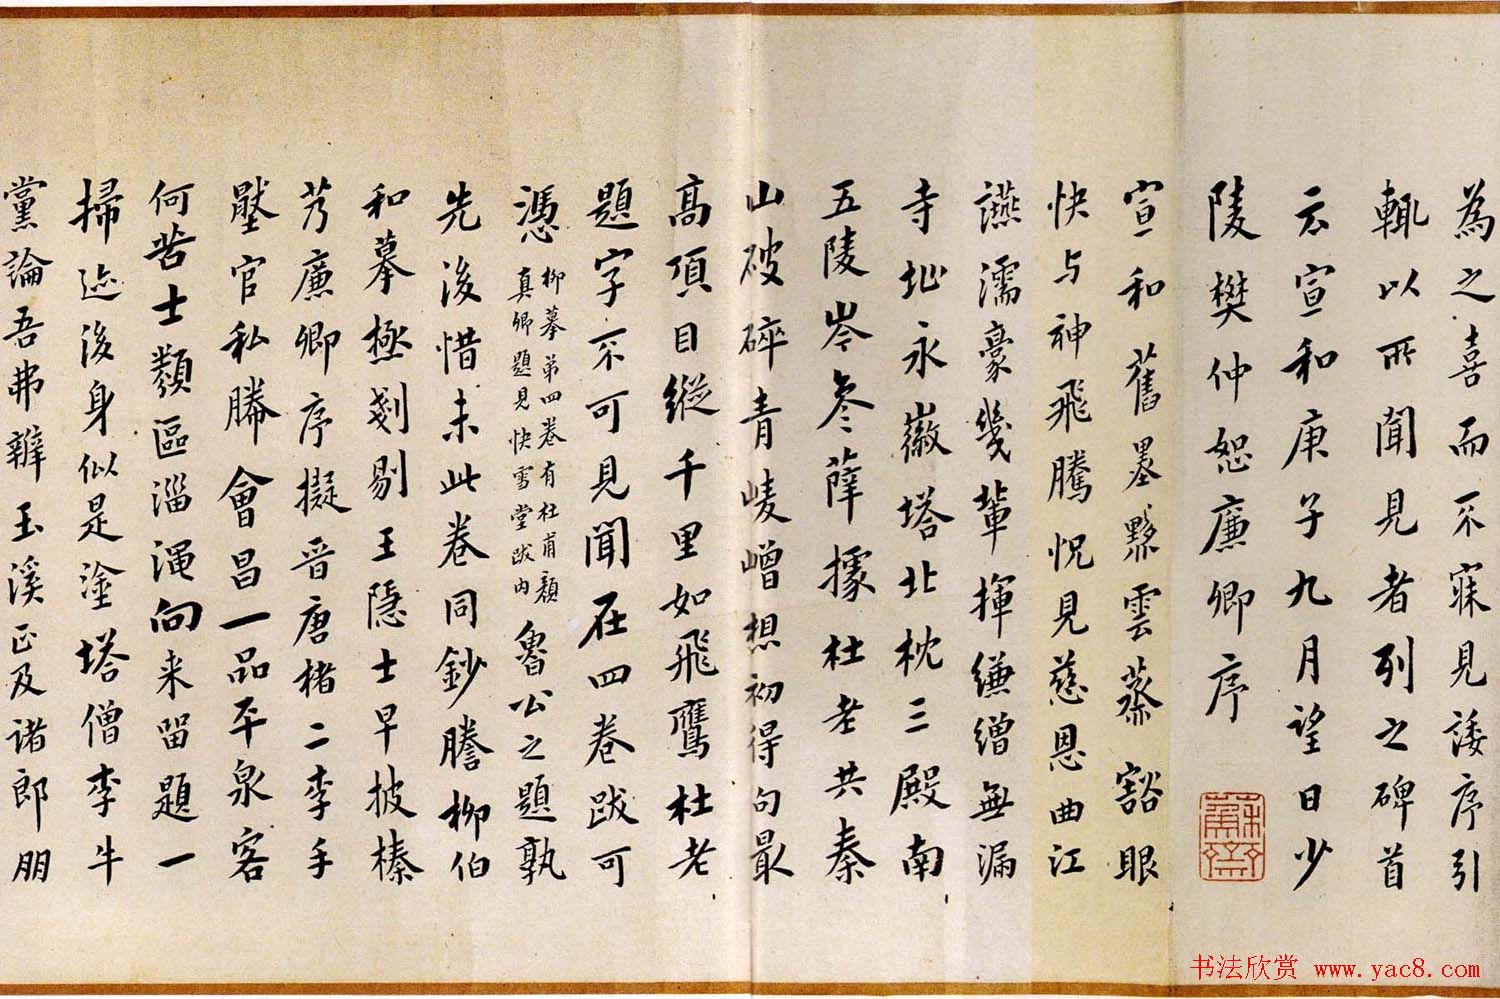 為之喜而不寐見諉序引
輒以所聞見者列之碑首
云宣和庚子九月望日少
陵樊仲恕廉卿序
蘇齋
宣和舊墨黟雲蒸豁眼
快与神飛騰怳見慈恩曲江
讌濡豪幾輩揮縑繒無漏
寺址永徽塔北枕三殿南
五陵岑參薛據杜老共秦
山破碎青崚嶒想初得句最
高頂目縱千里如飛鷹杜老
題字不可見聞在四卷跋可
憑柳摹弟四卷有杜甫顏真卿題見快雪堂跋內魯公之題孰
先後惜未此卷同鈔謄柳伯
和摹極剗剔王隱士早披榛
艿廉卿序擬晋唐楮二李手
壓官私勝會昌一品平泉客
何苦士類區淄澠向来留題一
掃迹後身似是塗塔僧李牛
黨論吾弗辨玉溪正及诸郎朋
书法欣赏 www.yac8.com